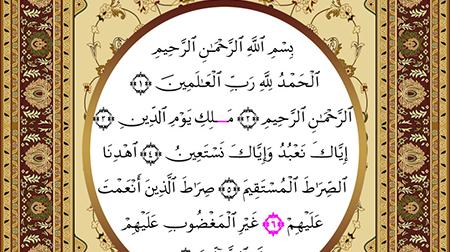 بِسْمِ اللَّهِ الرَّحْمَٰنِ الرَّحِيمِ
الْحَمْدُ لِلَّهِ رَبِّ الْعَالَمِينَ ﴿١﴾
الرَّحْمَٰنِ الرَّحِيمِ ﴿٢﴾ مَـٰلِكِ يَوْمِ الدِّينِ ﴿٣﴾
إِيَّاكَ نَعْبُدُ وَإِيَّاكَ نَسْتَعِينُ ﴿٤﴾ اهْدِنَا
الصِّرَاطَ الْمُسْتَقِيمَ ﴿٥﴾ صِرَاطَ الَّذِينَ أَنْعَمْتَ
عَلَيْهِمْ ﴿٦﴾ غَيْرِ الْمَغْضُوبِ عَلَيْهِمْ